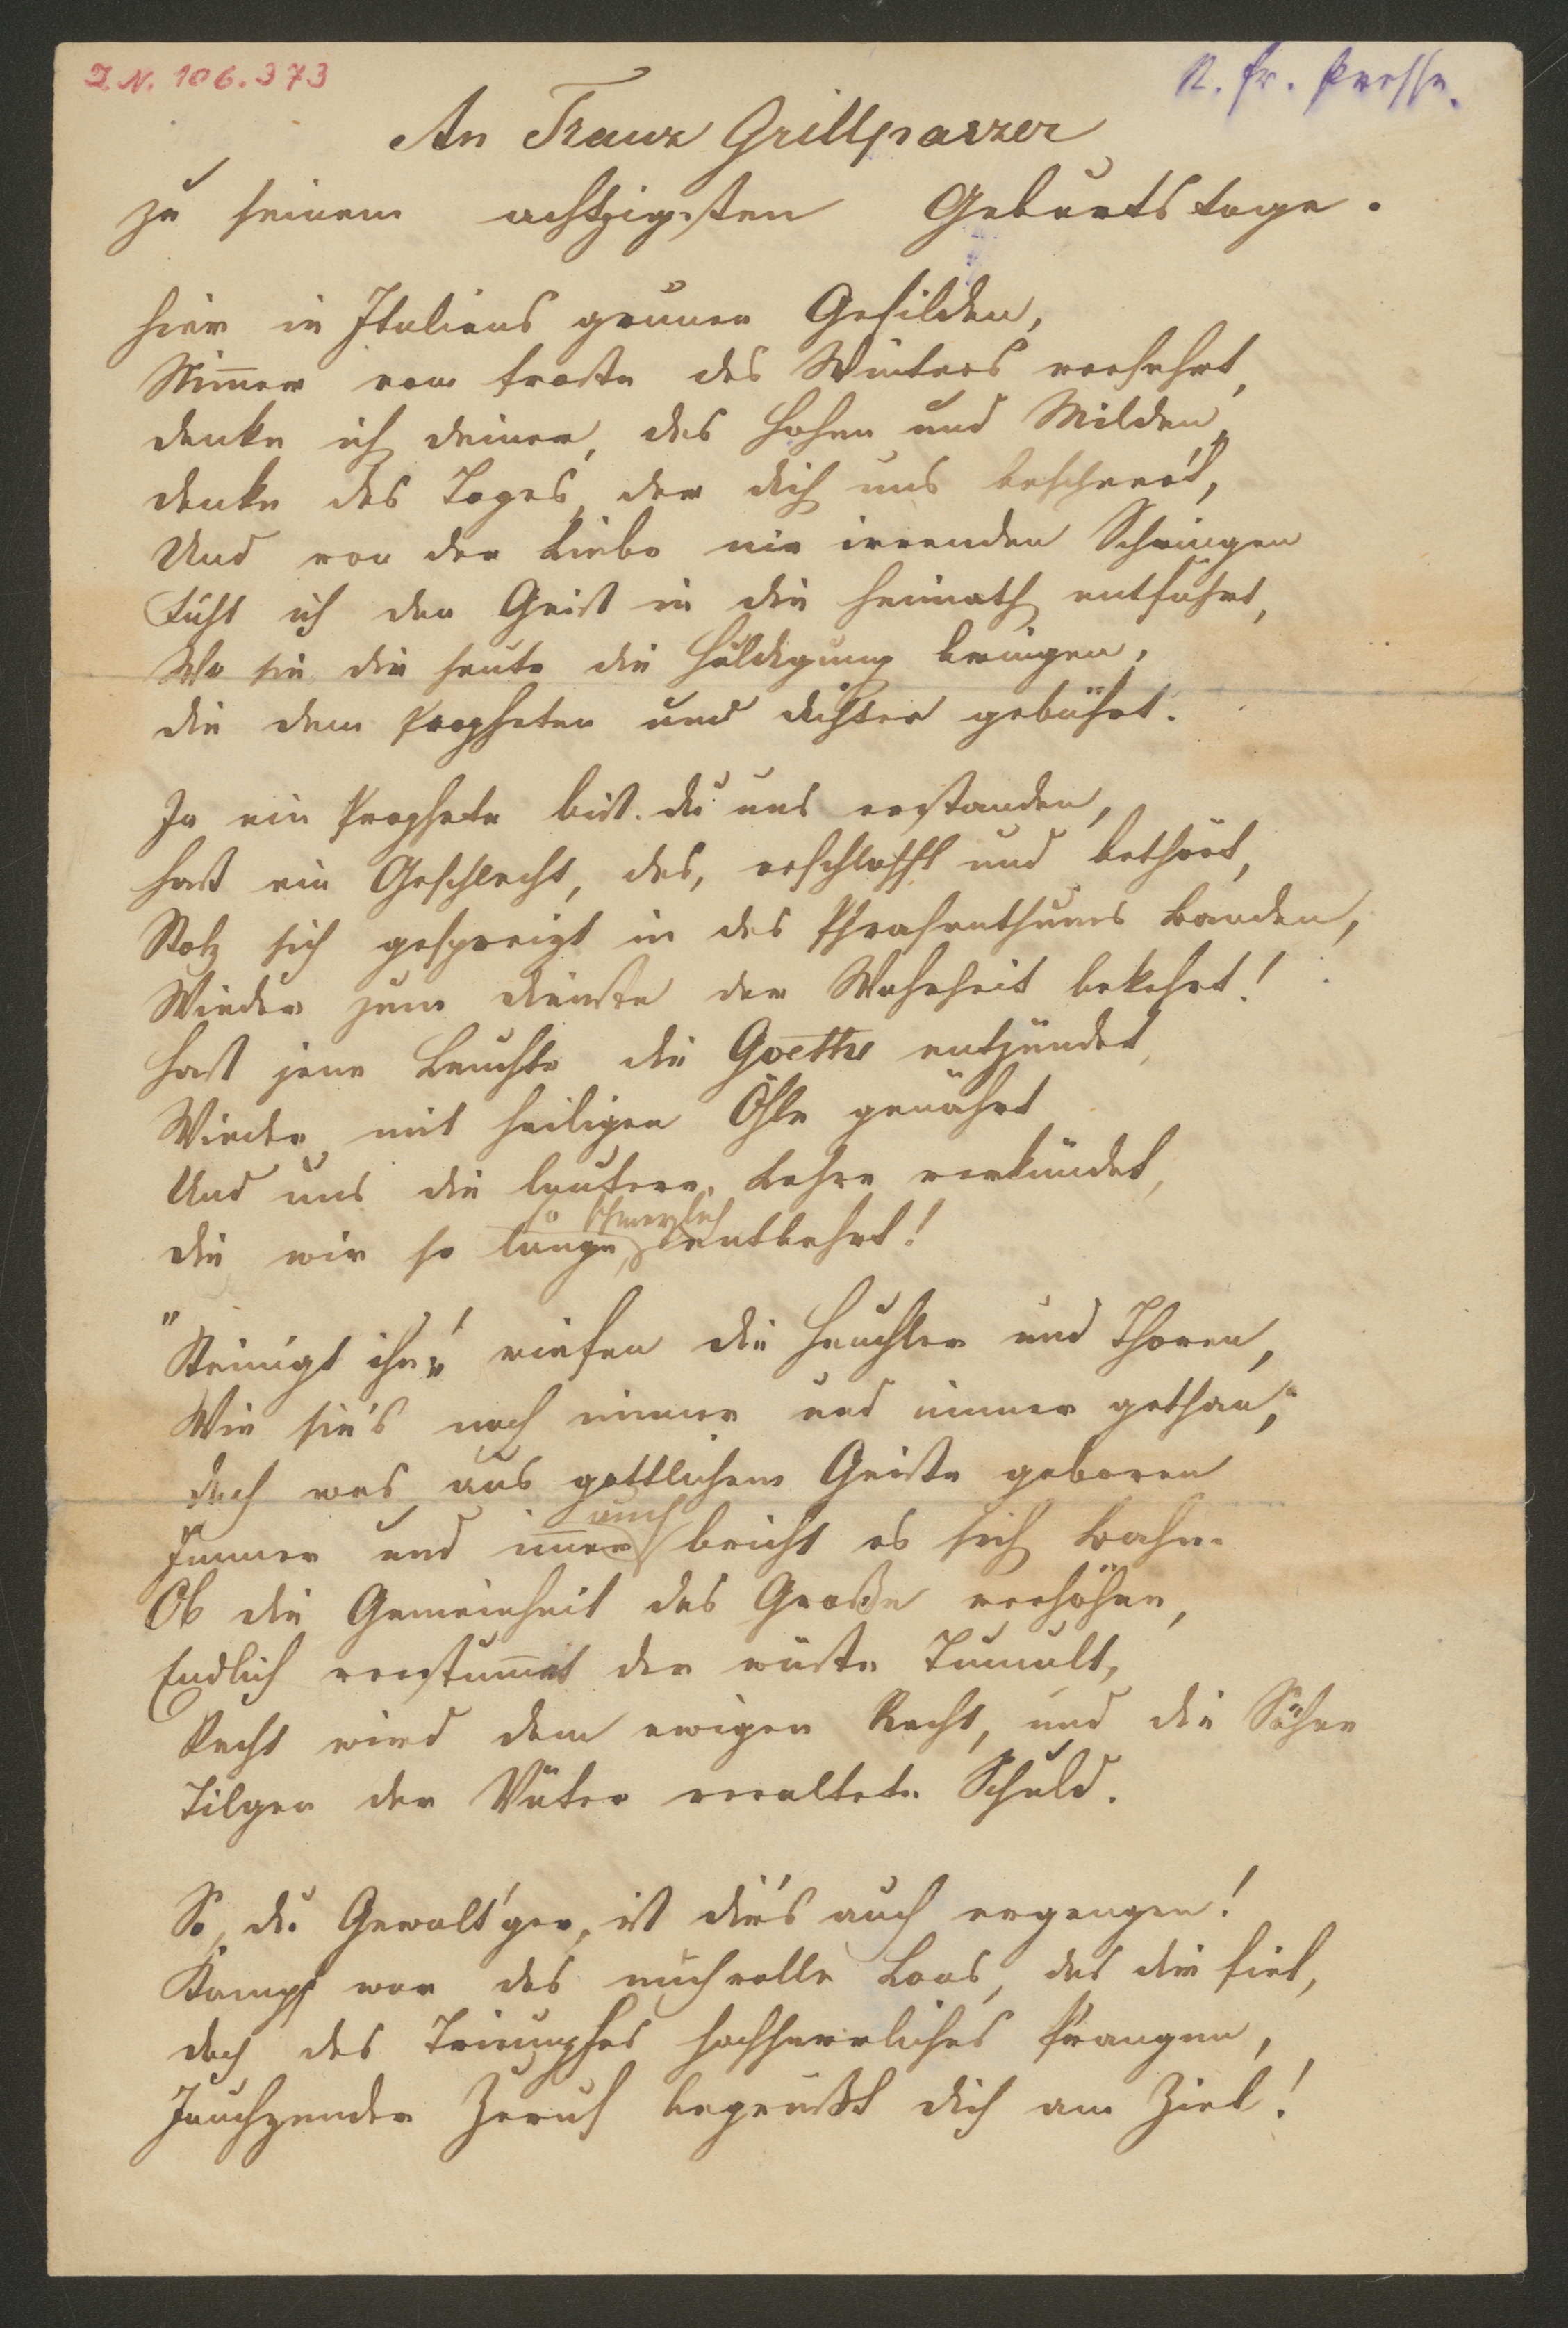 I. N. 106.373
N. fr. Presse.
An Franz Grillparzer
zu seinem achtzigsten Geburtstage.
Hier in Italiens grünen Gefilden,
Nimmer vom Froste des Winters versehrt,
Denke ich deiner, des Hohen und Milden,
Denke des Tages, der dich uns bescheert,
Und von der Liebe nie irrenden Schwingen
Fühl ich den Geist in die Heimath entführt,
Wo sie dir heute die Huldigung bringen,
Die dem Propheten und Dichter gebührt.
Ja ein Prophete bist du uns erstanden,
Hast ein Geschlecht, das, erschlafft und bethört,
Stolz sich gespreizt in des Phrasenthums Banden,
Wieder zum Dienste der Wahrheit bekehrt!
Hast jene Leuchte die Goethe entzündet,
Wieder mit heiligen Öhle genährt
Und uns die lautere Lehre verkündet,
so schmerzlich
Die wir so lange, entbehrt!
"Steinigt ihn!" riefen die Heuchler und Thoren,
Wie sie's noch immer und immer gethan;
Doch was aus göttlichem Geiste geboren
auch
Immer und immer bricht es sich Bahn.
Ob die Gemeinheit das Große verhöhne,
Endlich verstummt der wüste Tumult,
Recht wird dem ewigen Recht, und die Söhne
Tilgen der Väter veraltete Schuld.
So, du Gewalt'ger, ist dir's auch ergangen!
Kampf war das ruhvolle Loos, das dir fiel,
Doch des Triumphes hochherrliches Prangen,
Jauchzender Zuruf begrüßt dich am Ziel!